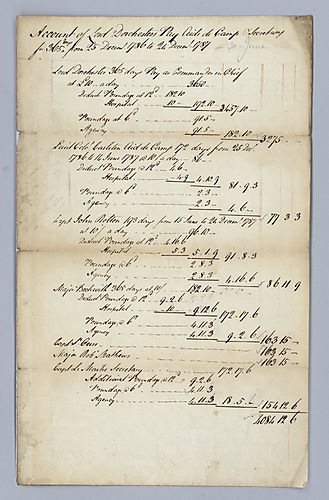 Account of Lord Dorchesters Pay Aids de Camp & Secretary
for 365 from 25 Decemr 1786 to 24 Decemr 1787
30 June
Lord Dorchester 365 days Pay as Commander in Chief
at £10 a day 3650..
Deduct Poundage at 12d 182.10
Hospital 10.. 192.10 3457.10
Poundage at 6d 91.5
Agency 91.5 182.10 3275
Lieut Colo. Carleton Aid de Camp 172 days from 25 Decr
1786 to 14 June 1787 @ 10/ a day 86
Deduct Poundage @ 12d 4.6
Hospital 4.9 4.10.9 81.9.3
Poundage @ 6d 2.3
Agency 2.3 4.6 77 3 3
Capt John Bolton 193 days from 15 June to 24 Decemr 1787
at 10/ a day 96.10
Deduct Poundage at 12d 4.16.6
Hospital 5.3 5.1.9 91.8.3
Poundage @ 6d 2.8.3
Agency 2.8.3 4.16.6 86 11 9
Major Beckwith 365 days at 10/ 182.10
Deduct Poundage @ 12d 9.2.6
Hospital 10 9.12.6 172.17.6
Poundage @ 6d 4.11.3
Agency 4.11.3 9.2.6 163 15
Capt 163 15
Major Rob Mathews 163 15
Capt Le Maistre Secretary 172.17.6
Additional Poundage @ 12d 9.2.6
Poundage @ 6d 4.11.3
Agency 4.11.3 18.5 154 12 6
4084 12 6